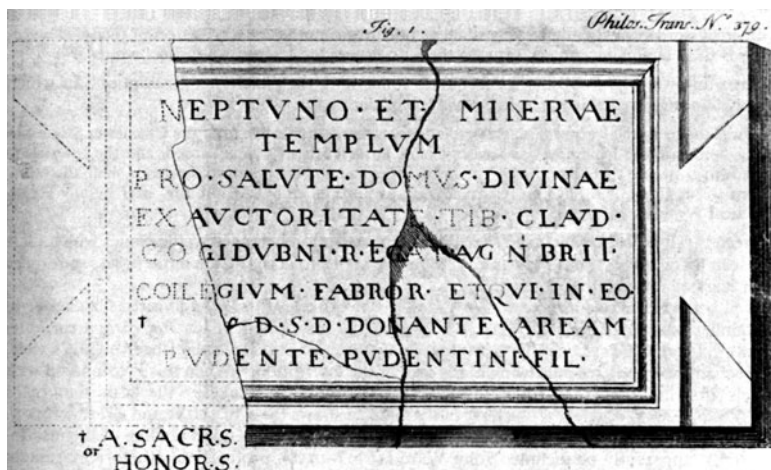 Fig. 1. Philos. Trans. N° 379.
NEPTVNO·ET· MINERVAE
TEMPLVM
PRO·SALVTE·DOMVS·DIVINAE
EX AVCTORITATE·TIB·CLAVD·
COGIDVBNI·R·LEGA·AVG·IN BRIT·
COLLEGIVM·FABROR·ET QVI·IN·EO·
† D·S·D·DONANTE·AREAM
PVDENTE·PVDENTINI·FIL·
† A. SACR.S.
or HONOR.S.